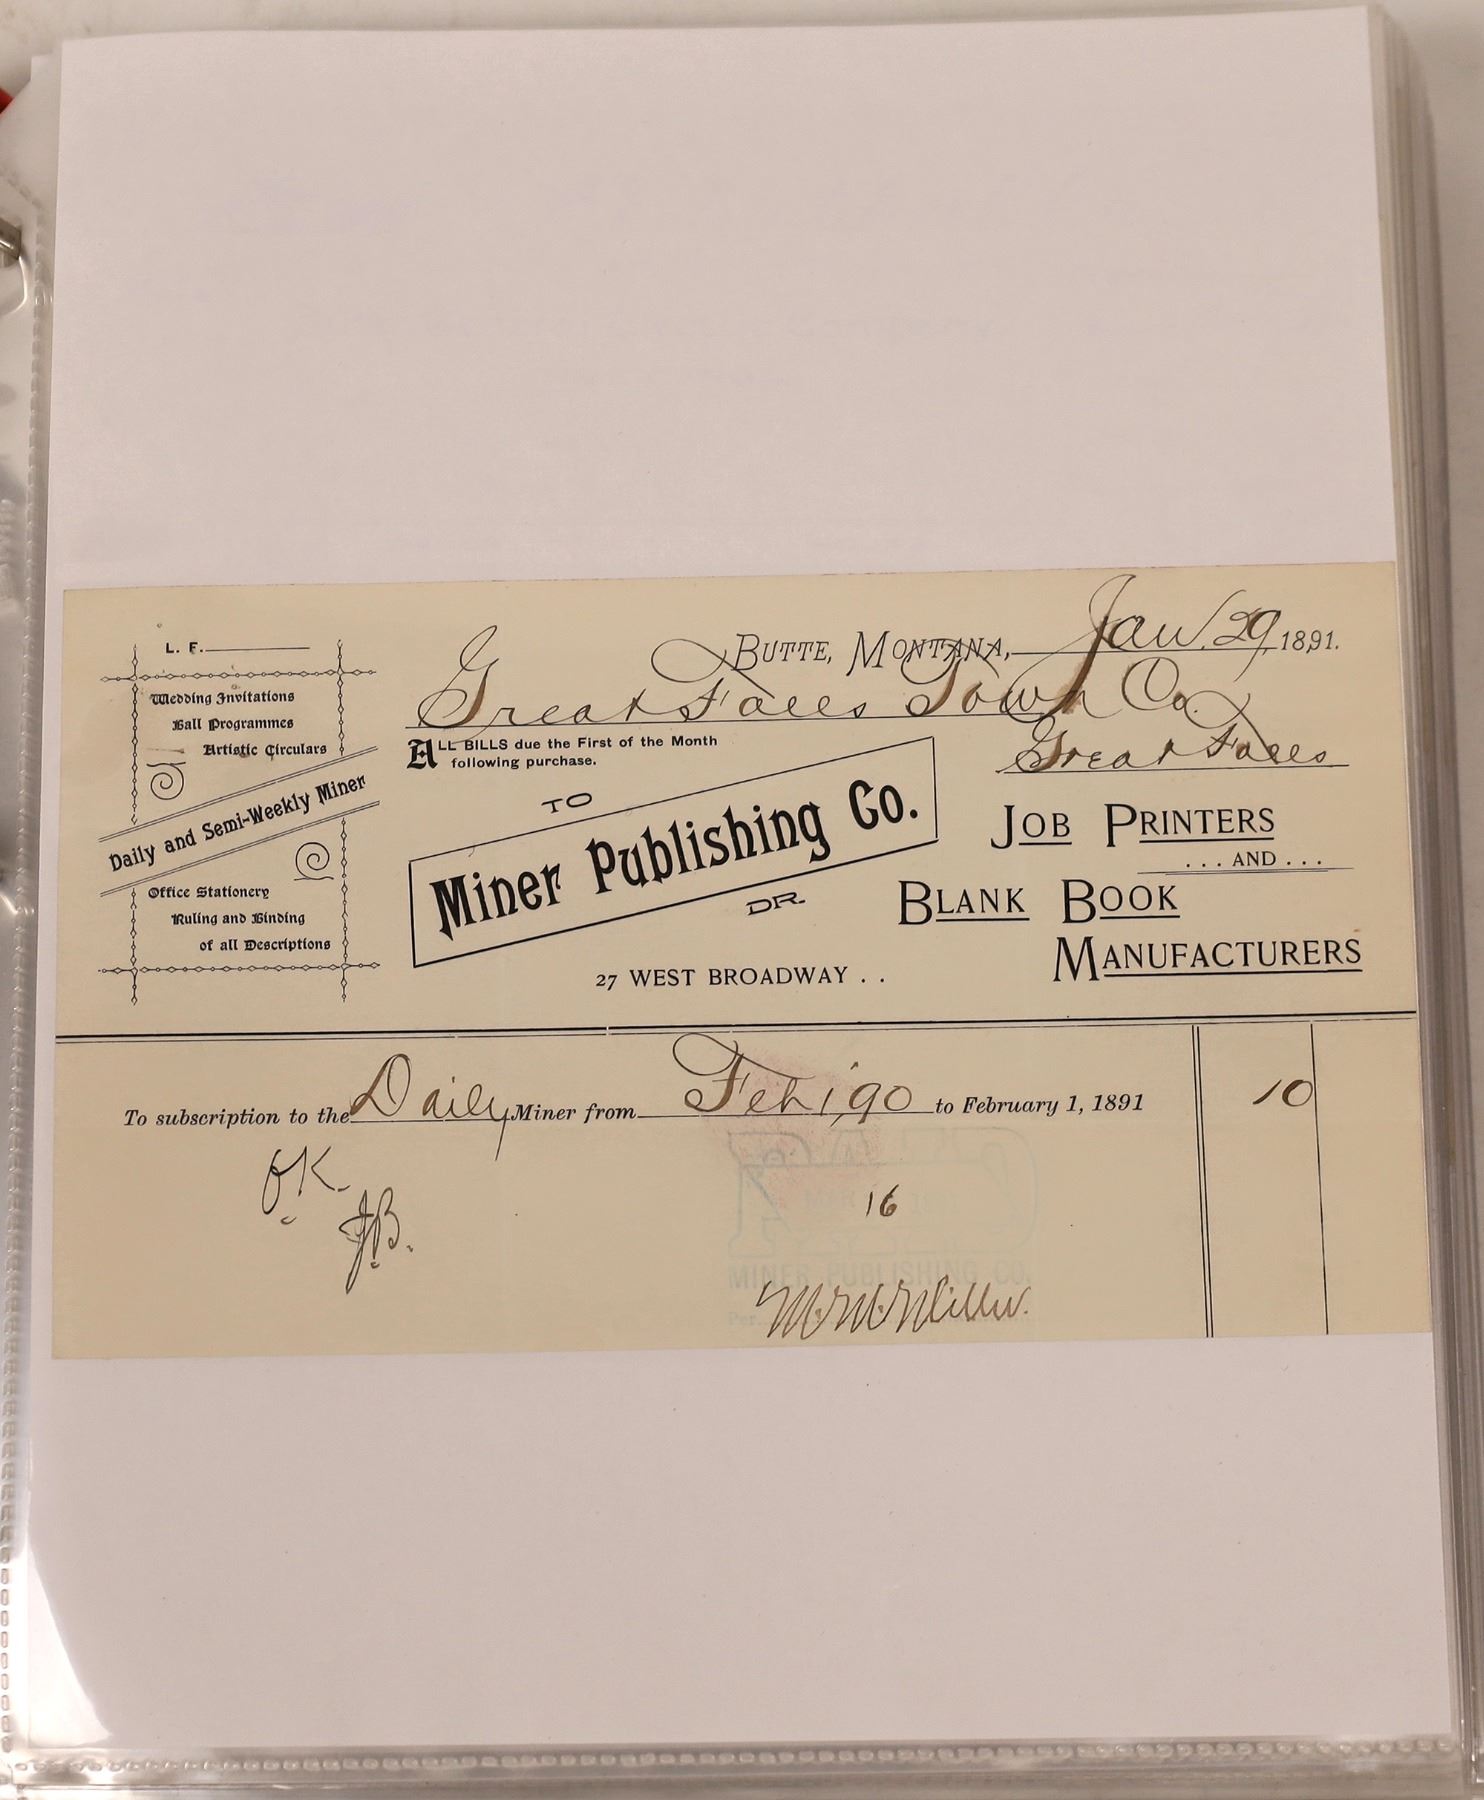 L. F.
Wedding Invitations
Ball Programmes
Artistic Circulars
Daily and Semi-Weekly Miner
Office Stationery
Ruling and Binding
of all Descriptions
BUTTE, MONTANA, Jan. 29, 1891.
Great Falls Town Co.
Great Falls
ALL BILLS due the First of the Month
following purchase.
TO
Miner Publishing Co.
DR.
27 WEST BROADWAY . .
JOB PRINTERS
. . . AND . . .
BLANK BOOK
MANUFACTURERS
To subscription to the Daily Miner from Feb 1, 90 to February 1, 1891 10
OK.
J.B.
16
MINER PUBLISHING CO.
Per